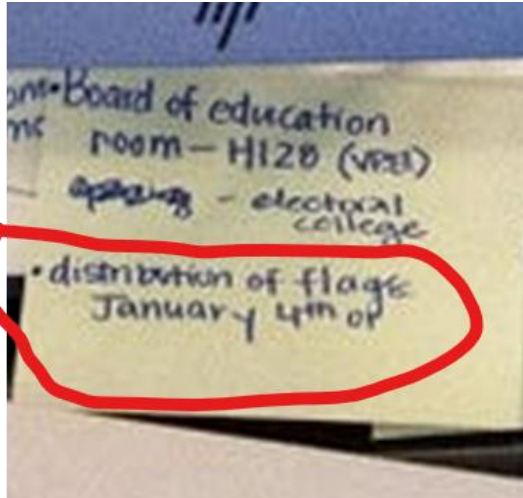 • Board of education
room - H128
- electoral
college
• distribution of flags
January 4th or